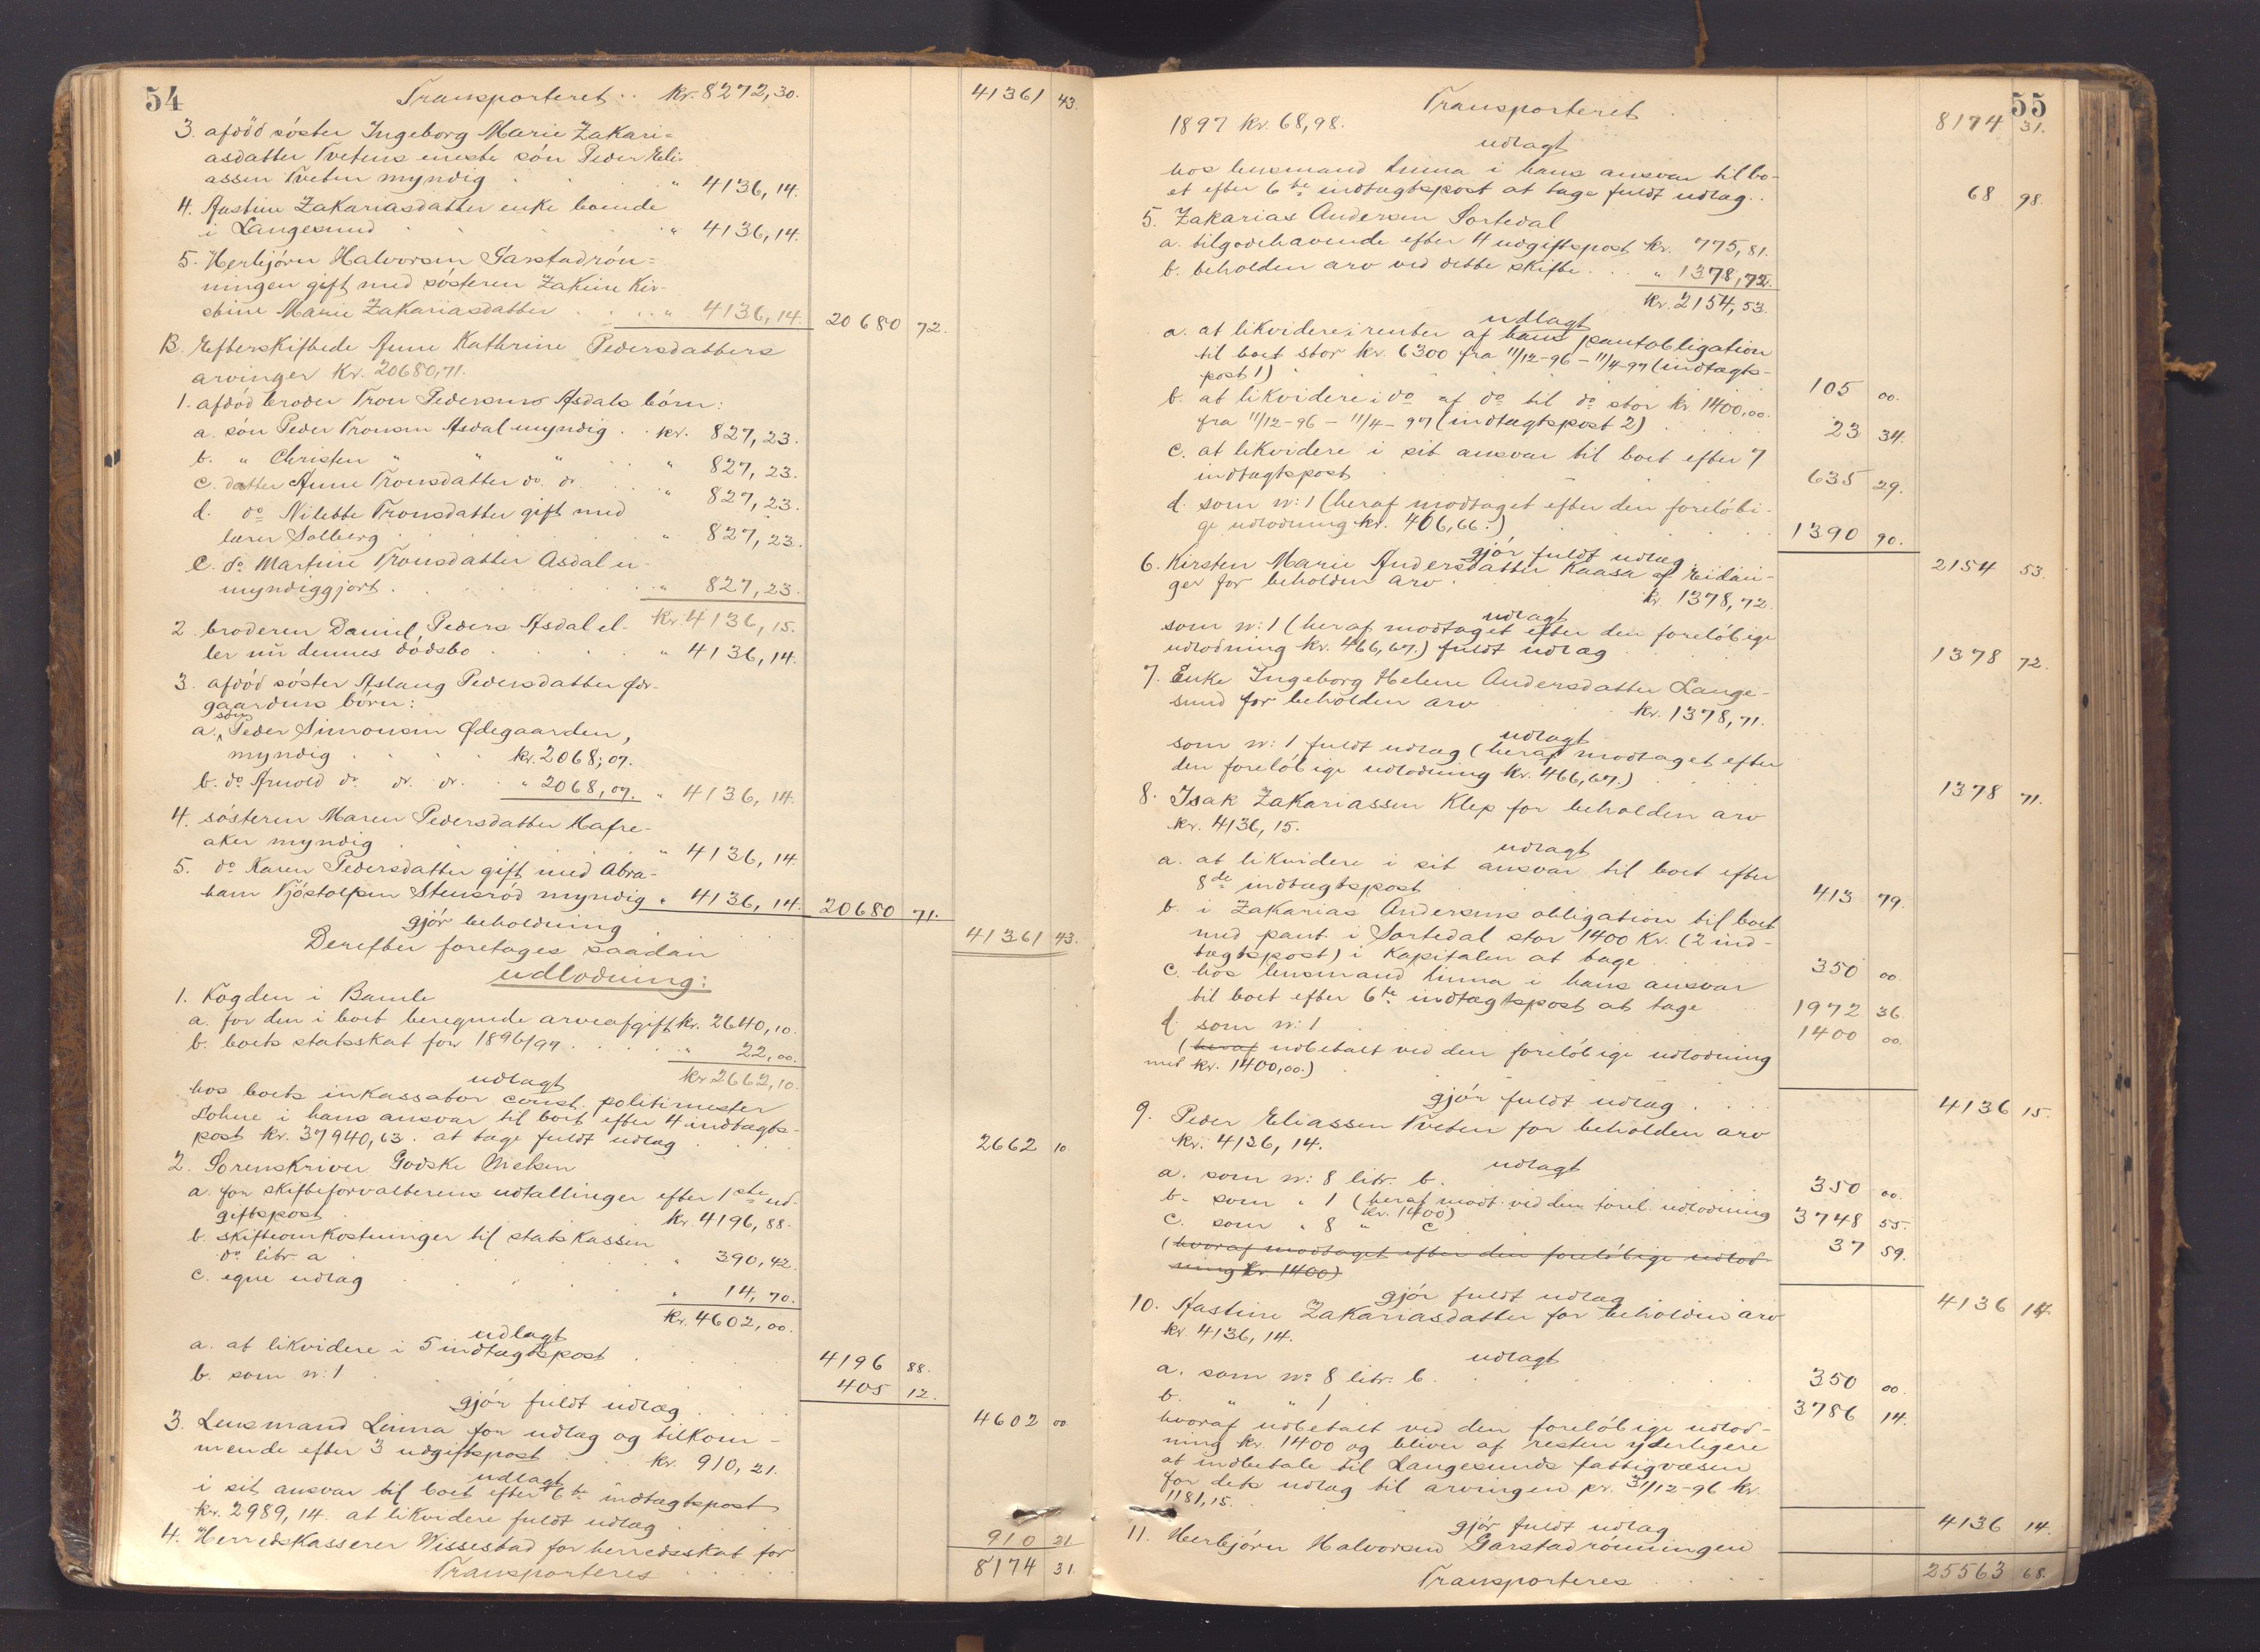 54
Transporteret . . kr. 8272,30. 41361 43.
3. afdöd söster Ingeborg Marie Zakari=
asdatter Tvetens eneste sön Peder Eli-
assen Tveten myndig . . . " 4136,14.
4. Aastine Zakariasdatter enke boende
i Langesund . . . . " 4136,14.
5. Herbjörn Halvorsen Garstadrön=
ningen gift med sösteren Zakine Kir-
stine Marie Zakariasdatter . . . " 4136,14. 20680 72.
B. Efterskiftede Anne Kathrine Pedersdatters
arvinger kr. 20680,71.
1. afdöd broder Tron Pedersens Asdals börn:
a. sön Peder Tronsen Asdal myndig . . kr. 827,23.
b. " Christen " " " . . " 827,23.
c. datter Anne Tronsdatter do. do. . . " 827,23.
d. do Nilette Tronsdatter gift med
lærer Solberg . . . . " 827,23.
e. do Martine Tronsdatter Asdal u-
myndiggjort . . . . " 827,23.
kr. 4136,15.
2. broderen Daniel Peders Asdal el-
ler nu dennes dödsbo . . . " 4136,14.
3. afdöd söster Aslaug Pedersdatter Øde-
gaardens börn:
a. sön Peder Simonsen Ødegaarden,
myndig . . . kr. 2068,07.
b. do Arnold do. do. do. . " 2068,07. " 4136,14.
4. sösteren Maren Pedersdatter Hafre-
aker myndig . . . . " 4136,14.
5. do Karen Pedersdatter gift med Abra-
ham Tjöstolfsen Stensröd myndig " 4136,14. 20680 71.
gjör beholdning . . . 41361 43.
Derefter foretages saadan
udlodning:
1. Fogden i Bamle
a. for den i boet beregnede arveafgift kr. 2640,10.
b. boets statsskat for 1896/97 . . . " 22,00.
kr. 2662,10.
udlagt
hos boets inkassator const. politimester
Lohne i hans ansvar til boet efter 4 indtægts-
post kr. 37940,63. at tage fuldt udlæg . . 2662 10.
2. Sorenskriver Godske Nielsen
a. for skifteforvalterens udtællinger efter 1ste ud-
giftspost . . . kr. 4196,88.
b. skifteomkostninger til statskassen
do litr. a . . . . " 390,42.
c. egne udlæg . . . " 14,70.
kr. 4602,00.
udlagt
a. at likvidere i 5 indtægtspost . . . 4196 88.
b. som no: 1 . . . 405 12.
gjör fuldt udlæg . . . 4602 00.
3. Lensmand Linna for udlæg og tilkom-
mende efter 3 udgiftspost . . kr. 910,21.
udlagt
i sit ansvar til boet efter 6te indtægtspost
kr. 2989,14. at likvidere fuldt udlæg . . . 910 21
4. Herredskasserer Wissestad for herredsskat for
Transporteres . . . . 8174 31
55
Transporteret . . . 8174 31.
1897 kr. 68,98.
udlagt
hos lensmand Linna i hans ansvar til bo-
et efter 6te indtægtspost at tage fuldt udlæg . . 68 98.
5. Zakarias Andersen Sortedal
a. tilgodehavende efter 4 udgiftspost kr. 775,81.
b. beholden arv ved dette skifte . . . " 1378,72.
kr. 2154,53.
udlagt
a. at likvidere i renter af hans pantobligation
til boet stor kr. 6300 fra 11/12-96 - 11/4-97 (indtægts-
post 1) . . . 105 00.
b. at likvidere i do af do til do stor kr. 1400,00.
fra 11/12-96 - 11/4-97 (indtægtspost 2) . . 23 34.
c. at likvidere i sit ansvar til boet efter 7
indtægtspost . . . 635 29.
d. som no: 1 (heraf modtaget efter den forelöbi-
ge udlodning kr. 466,66.) . . . 1390 90.
gjör fuldt udlæg . . . 2154 53.
6. Kirsten Marie Andersdatter Kaasa af Eidan-
ger for beholden arv . . . kr. 1378,72.
udlagt
som no: 1 (heraf modtaget efter den forelöbige
udlodning kr. 466,67.) fuldt udlæg . . . 1378 72.
7. Enke Ingeborg Helene Andersdatter Lange-
sund for beholden arv . . . kr. 1378,71.
udlagt
som no: 1 fuldt udlæg (heraf modtaget efter
den forelöbige udlodning kr. 466,67.) . . . 1378 71.
8. Isak Zakariassen Klep for beholden arv
kr. 4136,15.
udlagt
a. at likvidere i sit ansvar til boet efter
8de indtægtspost . . . 413 79.
b. i Zakarias Andersens obligation til boet
med pant i Sortedal stor 1400 kr. (2 ind-
tægtspost) i kapitalen at tage . . . 350 00.
c. hos lensmand Linna i hans ansvar
til boet efter 6te indtægtspost at tage . . 1972 36.
d. som no: 1 . . . 1400 00.
(heraf udbetalt ved den forelöbige udlodning
med kr. 1400,00.) .
gjör fuldt udlæg . . . 4136 15.
9. Peder Eliassen Tveten for beholden arv
kr. 4136,14.
udlagt
a. som no: 8 litr. b. . . . 350 00.
b. som " 1 (heraf modt. ved den forel. udlodning kr. 1400) 3748 55.
c. som " 8 " c . . 37 59.
(hvoraf modtaget efter den forelöbige udlod-
ning kr. 1400)
gjör fuldt udlæg . . . 4136 14.
10. Aastine Zakariasdatter for beholden arv
kr. 4136,14.
udlagt
a. som no: 8 litr. b. . . . 350 00.
b. " " 1 . . . 3786 14.
hvoraf udbetalt ved den forelöbige udlod-
ning kr. 1400 og bliver af resten yderligere
at indbetale til Langesunds fattigvæsen
for dets udlæg til arvingen pr. 31/12-96 kr.
1181,15. .
gjör fuldt udlæg . . . 4136 14.
11. Herbjörn Halvorsen Garstadrönningen
Transporteres . . . 25563 68.